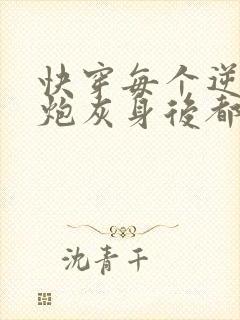 快穿每个逆
炮灰身後都
沈青千